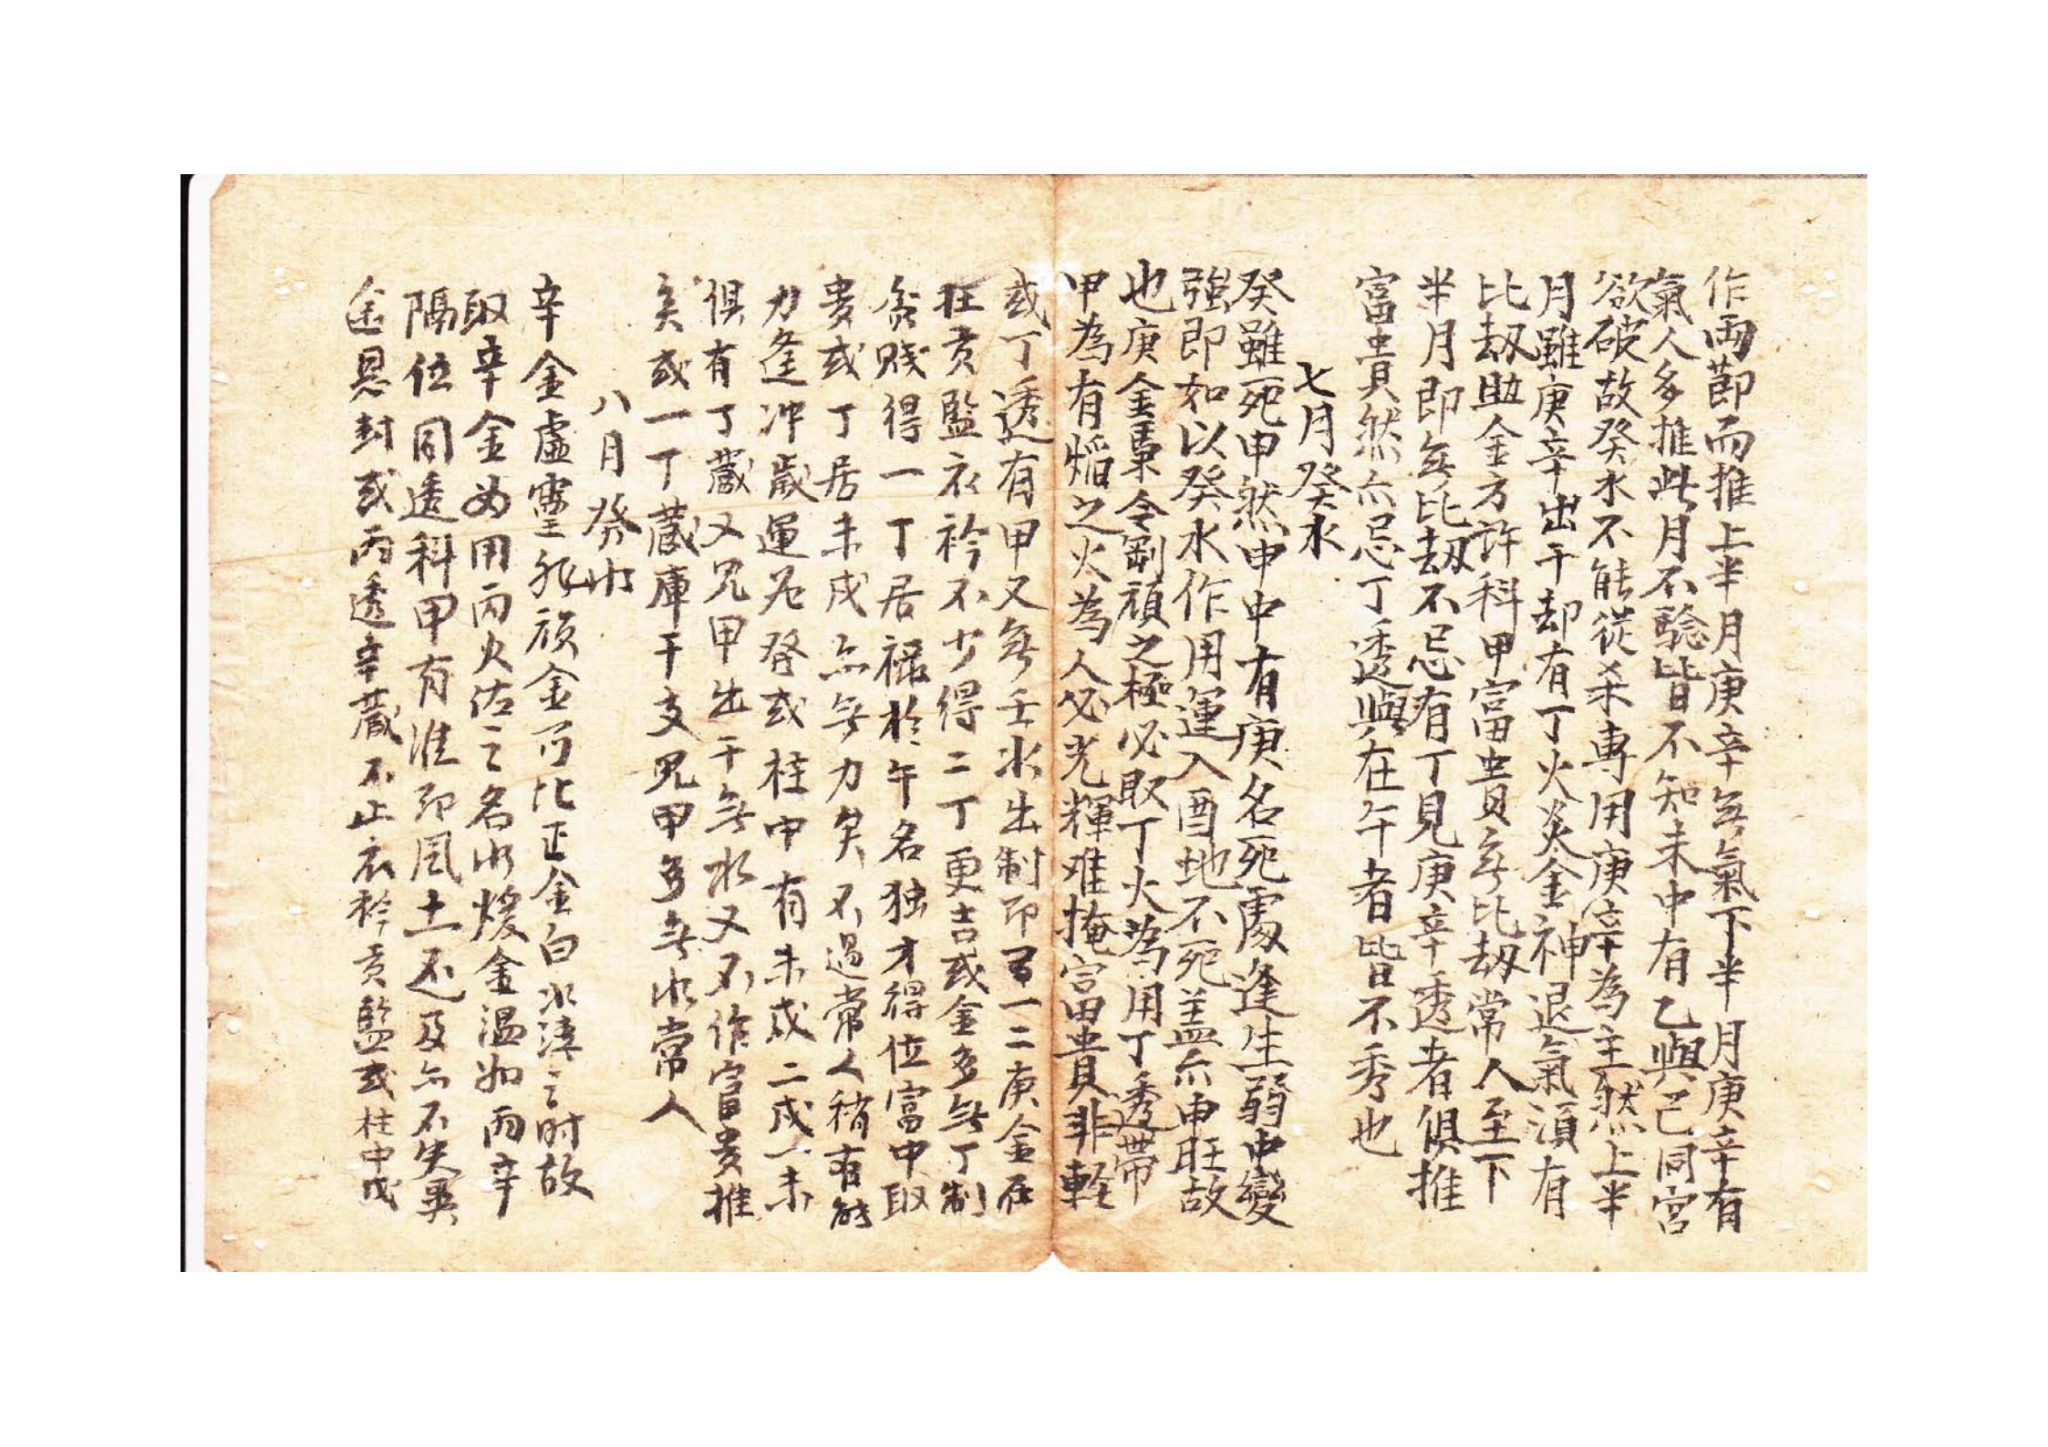 作兩節而推上半月庚辛無氣下半月庚辛有
氣人多推此月不驗皆不知未中有乙與己同宮
欲破故癸水不能從杀專用庚辛為主然上半
月雖庚辛出干却有丁火炎金神退氣須有
比刼助金方許科甲富貴無比刼常人至下
半月即無比刼不忌有丁見庚辛透者俱推
富貴然亦忌丁透與在午者皆不秀也
七月癸水
癸雖死申然申中有庚名死處逢生弱中變
强即如以癸水作用運入酉地不死盖亦申旺故
也庚金稟令剛頑之極必取丁火為用丁透帶
甲為有焰之火為人必光輝难掩富貴非輕
或丁透有甲又無壬水出制即有一二庚金在
柱貢監衣衿不少得二丁更吉或金多無丁制
貧賤得一丁居祿於午名独才得位富中取
貴或丁居未戌亦無力矣不過常人稍有能
力逢冲歲運必發或柱中有未或二戌一未
俱有丁藏又見甲出干無水又不作富貴推
矣或一丁藏庫干支見甲多無水常人
八月癸水
辛金虛靈非頑金可比正金白水清之時故
取辛金為用丙火佐之名水煖金溫如丙辛
隔位同透科甲有准即風土不及亦不失異
途恩封或丙透辛藏不止衣衿貢監或柱中戊